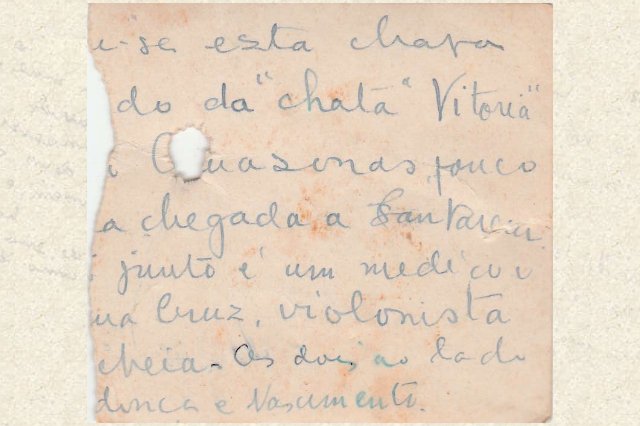 u-se esta chapa
do da "chata" Vitoria"
Amazonas, pouco
a chegada a Santarem
junto é um medico
Cruz, violonista
cheia. Os dois ao lado
donça e Nascimento.